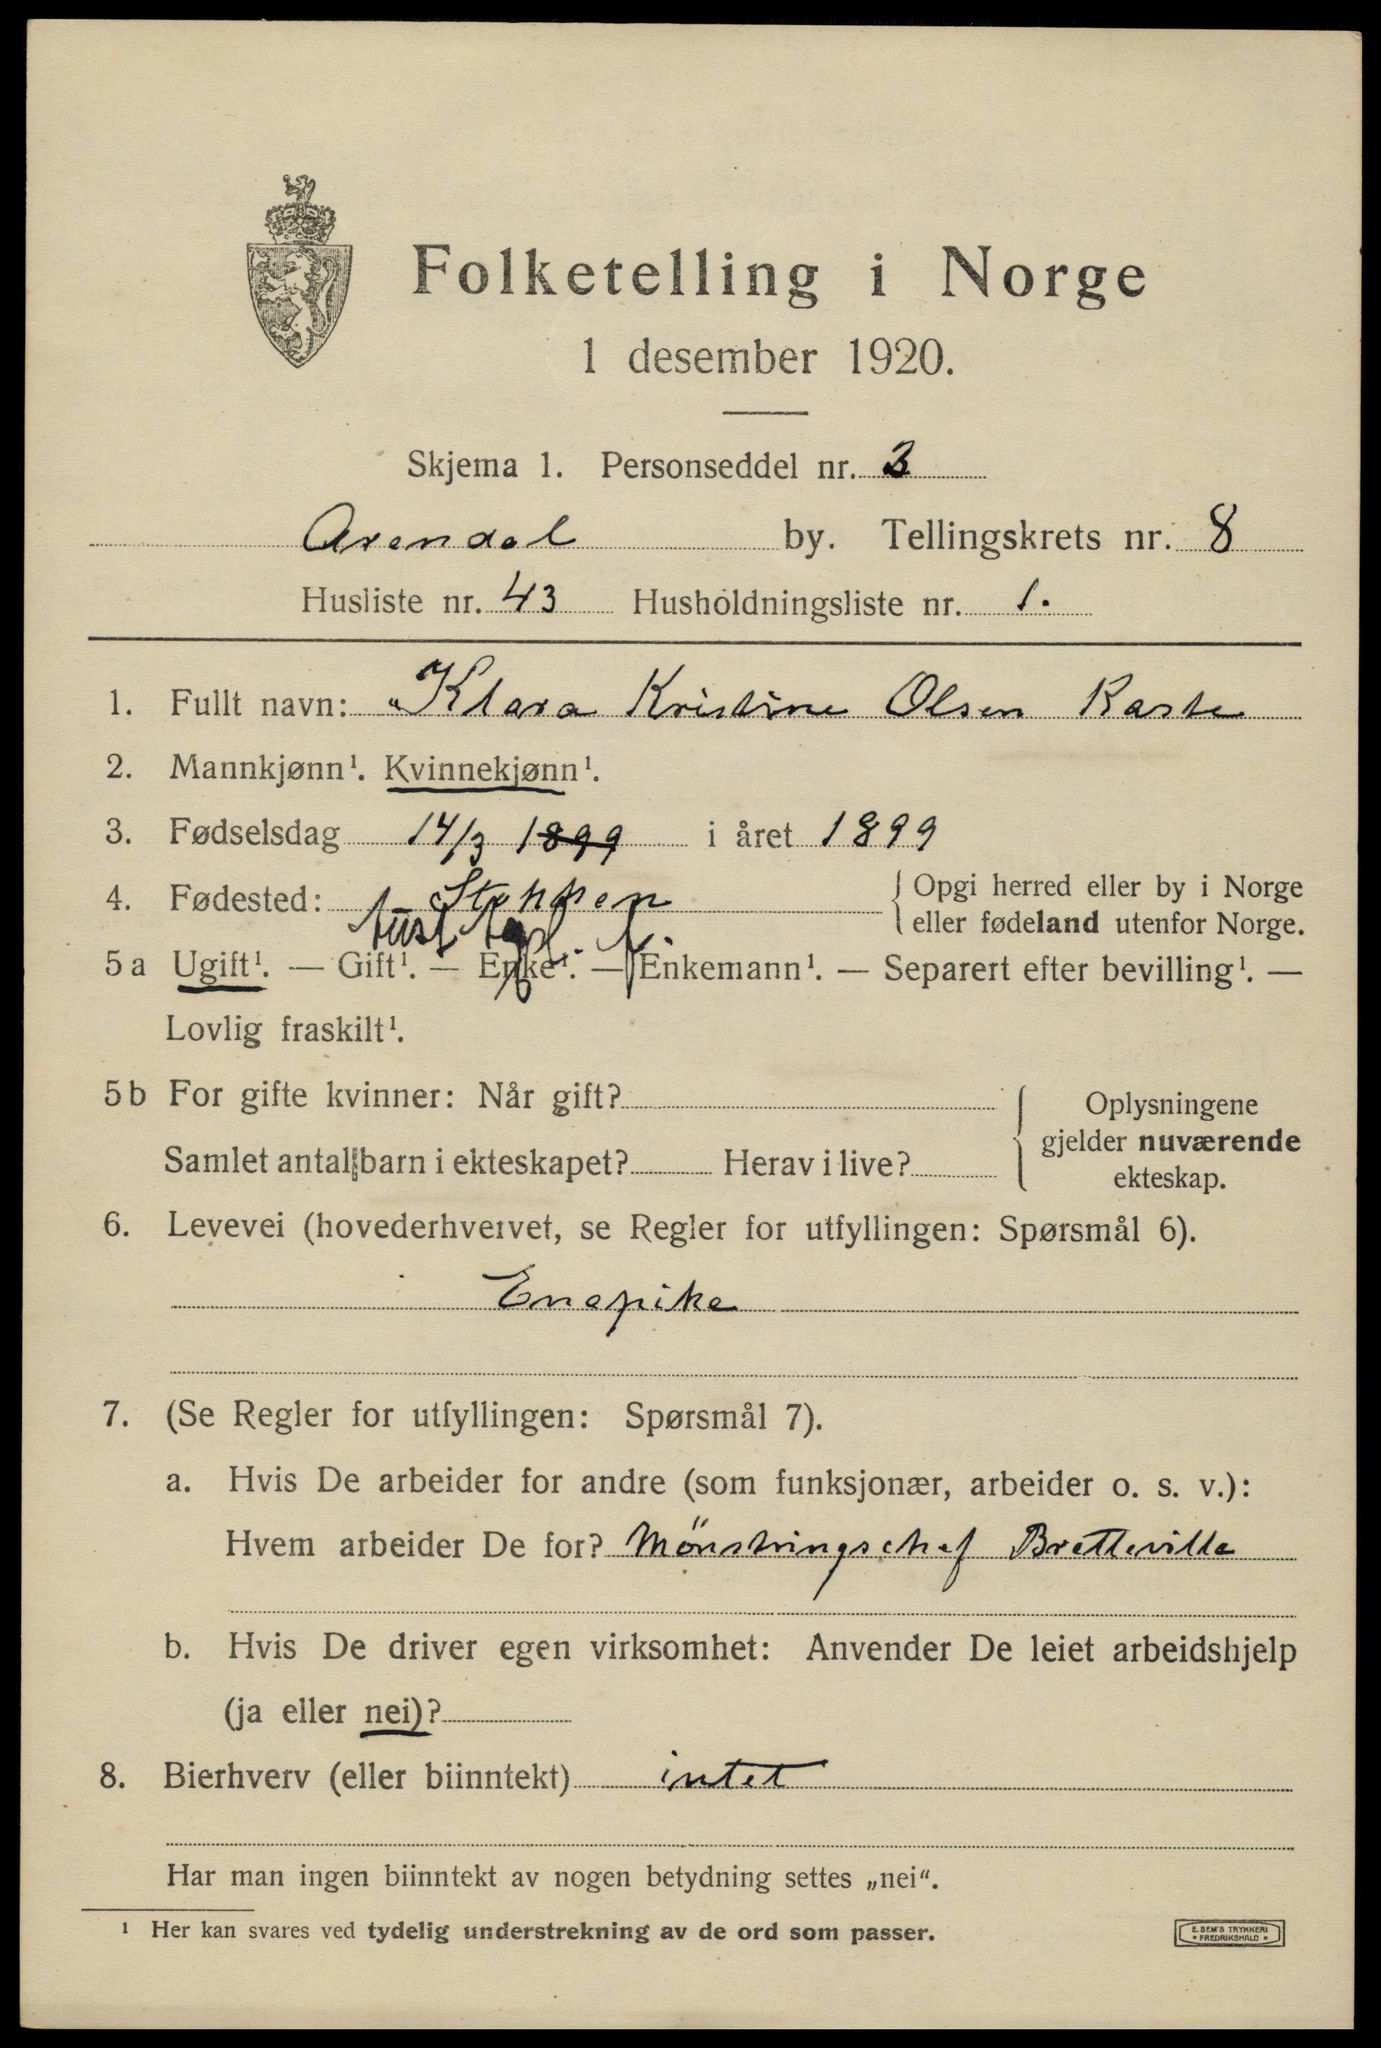 Folketelling i Norge
1 desember 1920.
Skjema 1. Personseddel nr. 3
Arendal by. Tellingskrets nr. 8
Husliste nr. 43 Husholdningsliste nr. 1.
1. Fullt navn: Klara Kristine Olsen Raste
2. Mannkjønn¹. Kvinnekjønn¹.
3. Fødselsdag 14/3 1899 i året 1899
4. Fødested: Stokken { Opgi herred eller by i Norge
eller fødeland utenfor Norge.
Aust Agd. f.
5 a Ugift¹. — Gift¹. — Enke¹. — Enkemann¹. — Separert efter bevilling¹. —
Lovlig fraskilt¹.
5 b For gifte kvinner: Når gift? { Oplysningene
gjelder nuværende
Samlet antal barn i ekteskapet? Herav i live?
ekteskap.
6. Levevei (hovederhvervet, se Regler for utfyllingen: Spørsmål 6).
Enepike
7. (Se Regler for utfyllingen: Spørsmål 7).
a. Hvis De arbeider for andre (som funksjonær, arbeider o. s. v.):
Hvem arbeider De for? Mönstringschef Bretteville
b. Hvis De driver egen virksomhet: Anvender De leiet arbeidshjelp
(ja eller nei)?
8. Bierhverv (eller biinntekt) intet
Har man ingen biinntekt av nogen betydning settes „nei“.
¹ Her kan svares ved tydelig understrekning av de ord som passer.
E. SEM'S TRYKKERI
* FREDRIKSHALD *